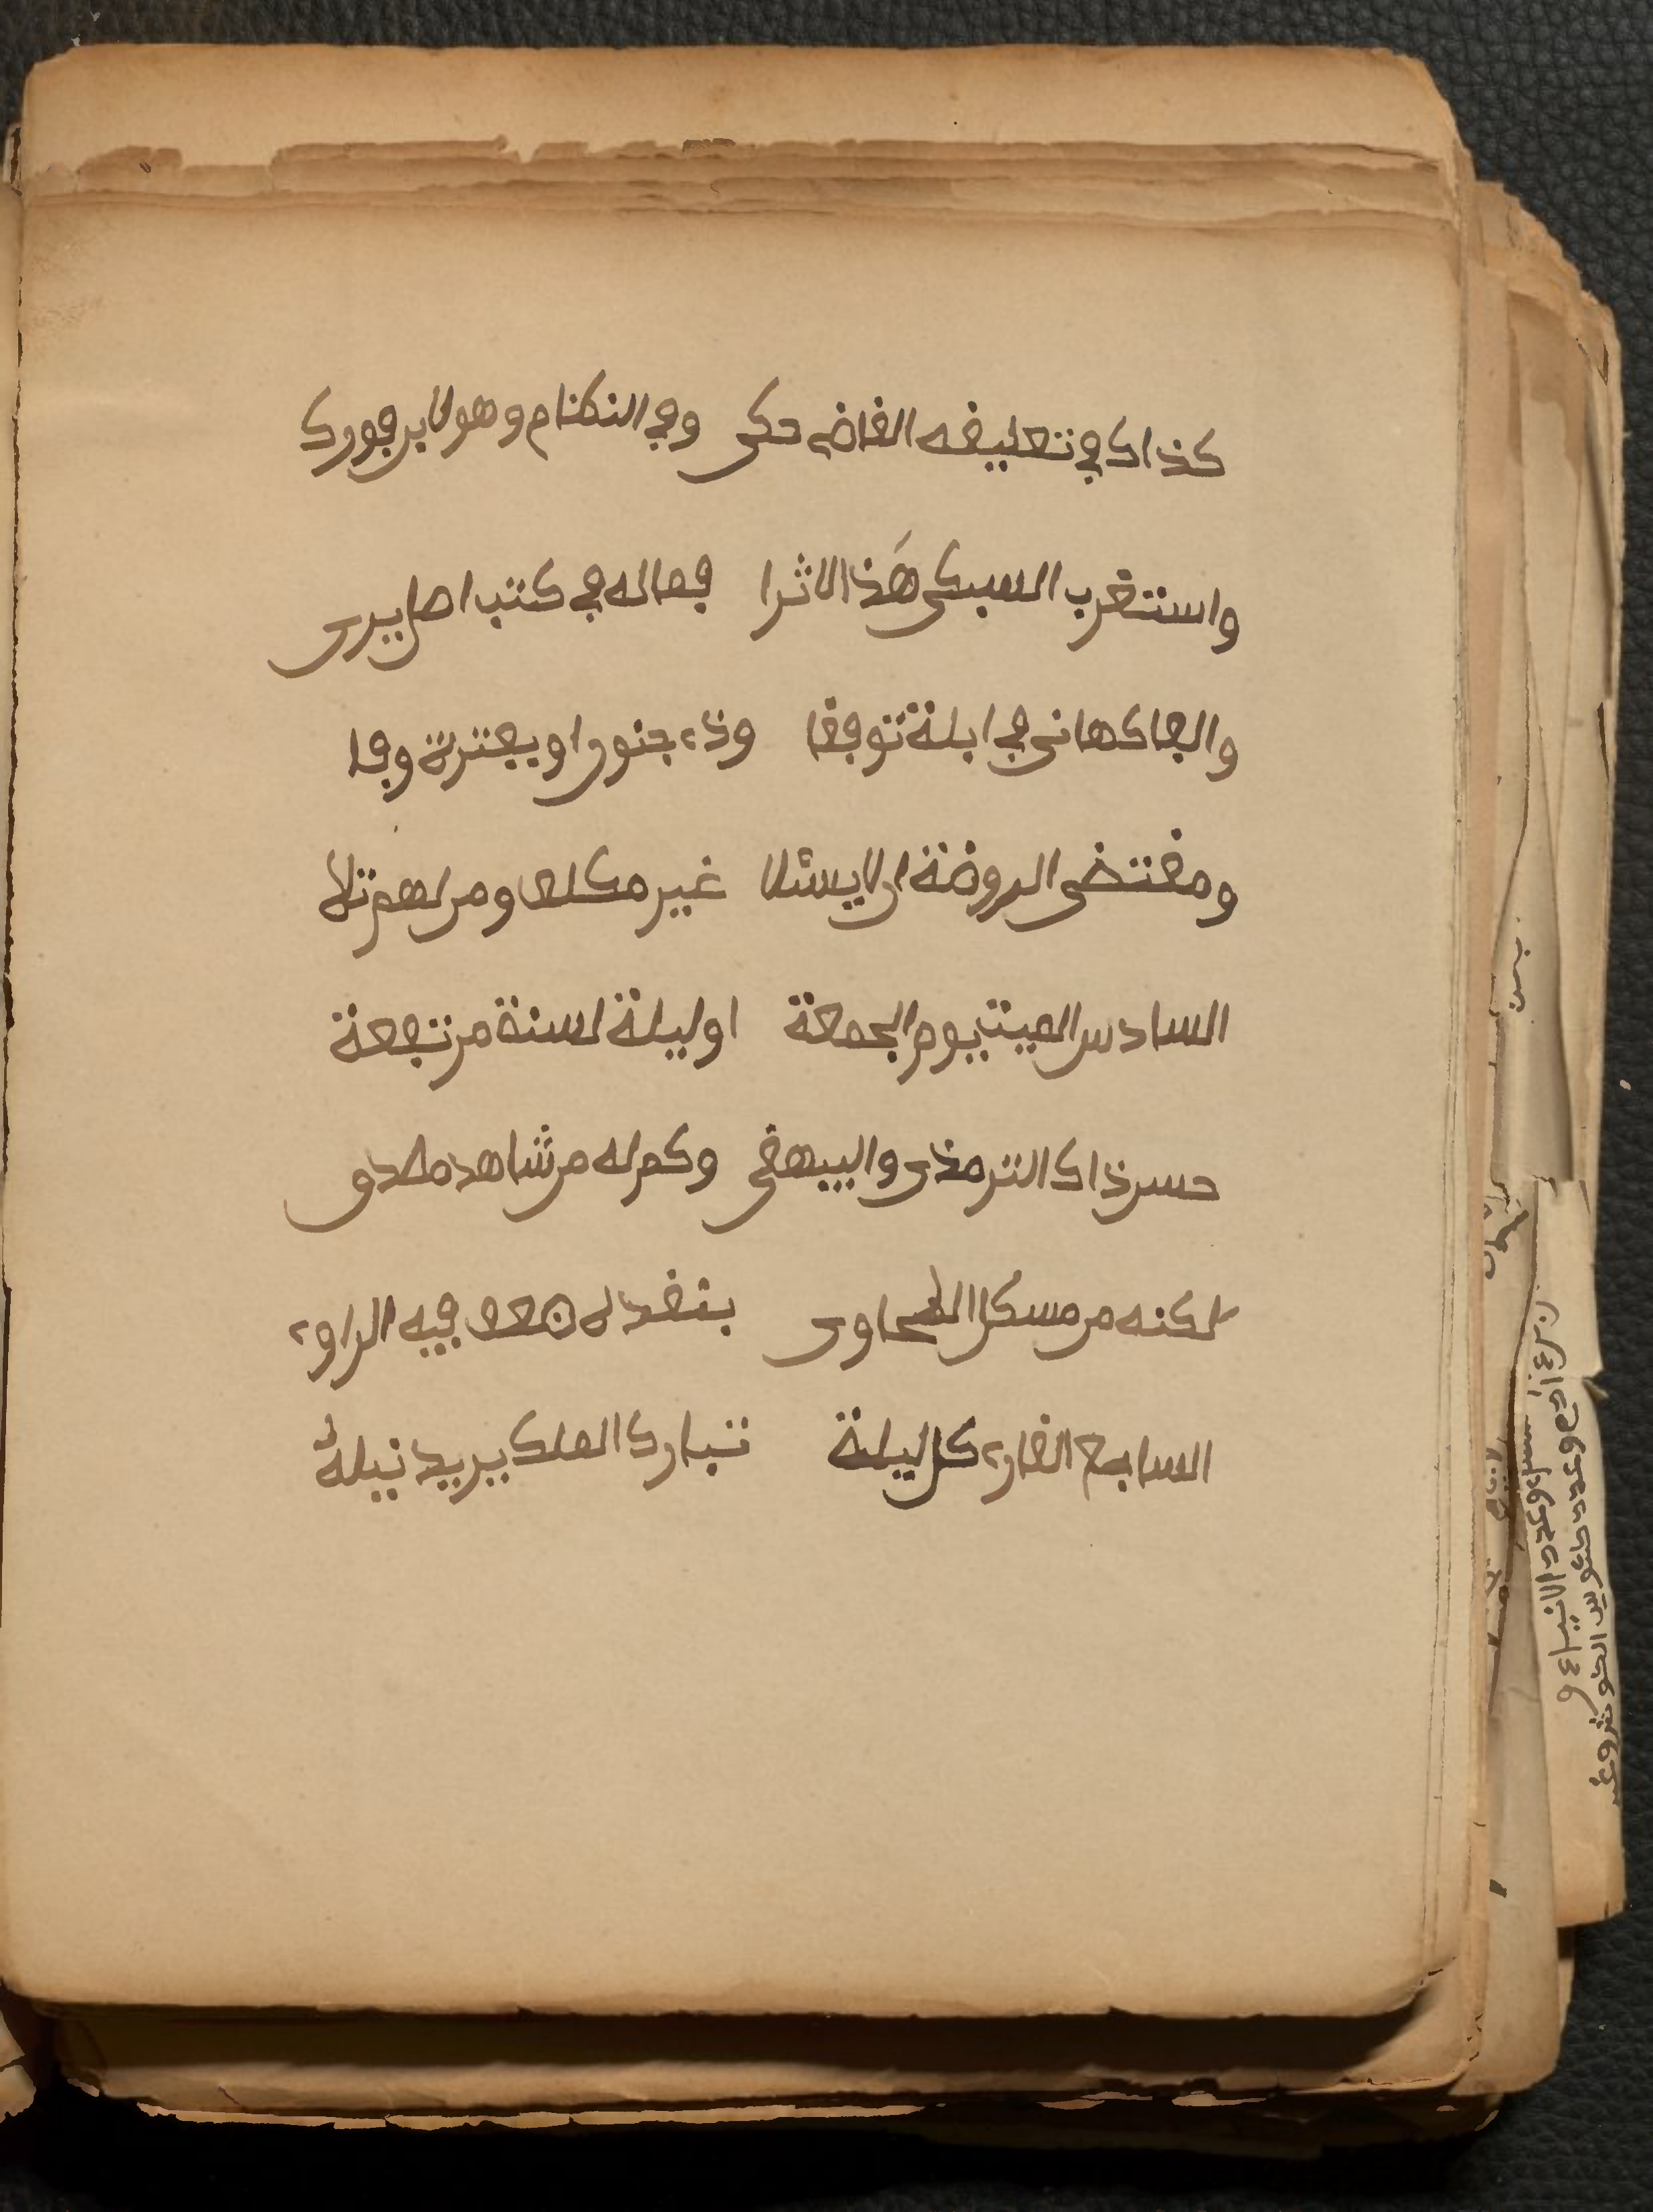 كذاك في تعليقه القاض حكى وفي النكظام وهو لابن فورك
واستغرب السبكي هَذا الاثرا فما له في كتب اصل يرى
والفاكهاني في ابلة توقفا وذے جنون او بفترة وفا
ومقتضى الروضة ان لا يسئلا غير مكلف ومن لهم تلا
السادس الميت يوم الجمعة او ليلة لسنة مرتفعة
حسن ذاك الترمذي والبيهقي وكم له من شاهد مصدق
لكنه من مسكل الطحاوى بنقد له ضعف فيه الراوے
السابع القارے كل ليلة تبارك الملك يريد نيلهُ